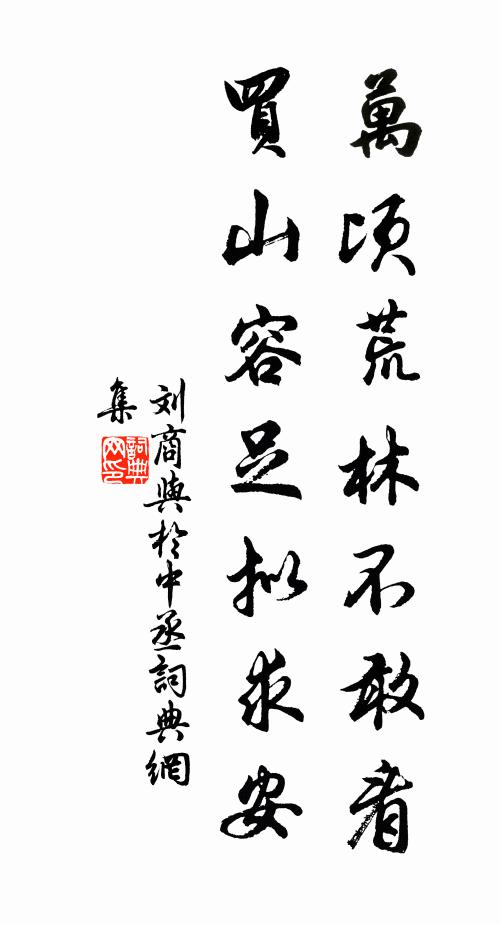 萬頃荒林不敢看
買山容足拟求安
刘商與於中丞詞典網
集
詞典
网印